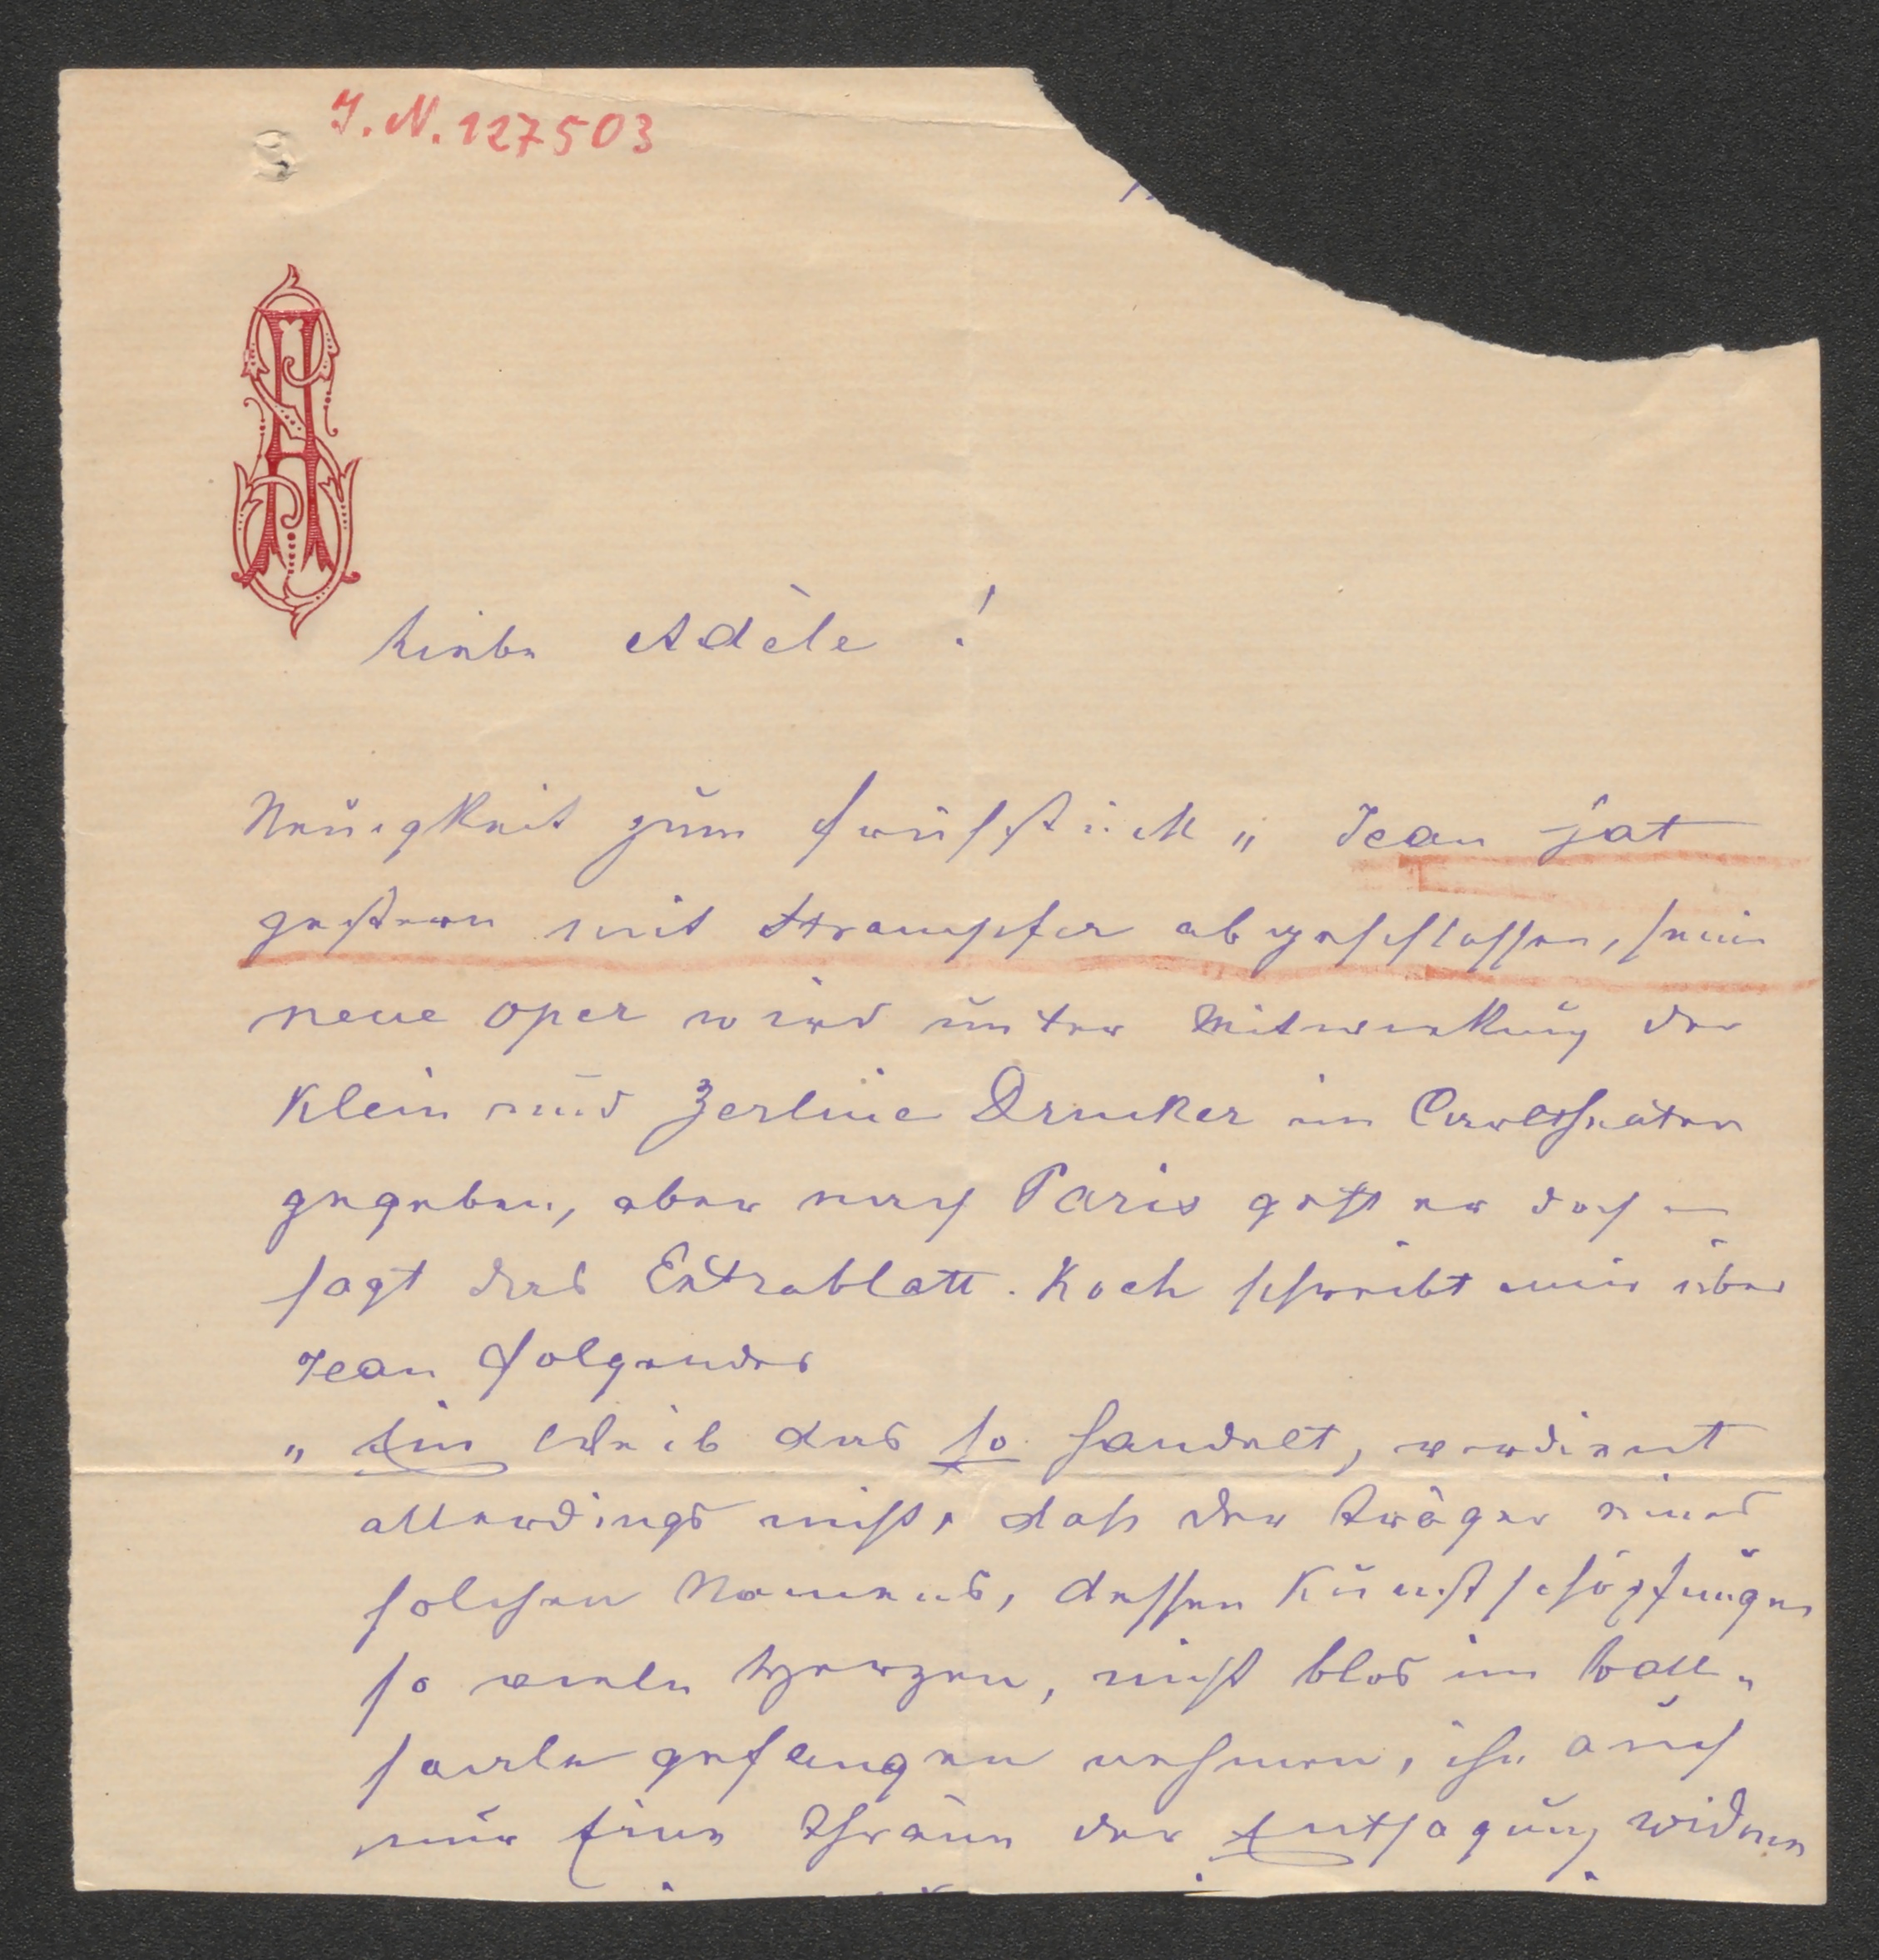 J.N. 127503
Liebe Adèle!
Neuigkeit zum Frühstück „ Jean hat
gestern mit Strampfer abgeschlossen, seine
neue Oper wird unter Mitwirkung der
Klein und Zerline Drucker im Carltheater
gegeben, aber nach Paris geht er doch —
sagt das Extrablatt. Koch schreibt mir über
Jean Folgendes
„ Ein Weib das so handelt, verdient
allerdings nicht, dass der Träger eines
solchen Namens, dessen Kunstschöpfungen
so viele Herzen, nicht blos im Ball-
saale gefangen nehmen, ihr auch
nur Eine Thräne der Entsagung widme